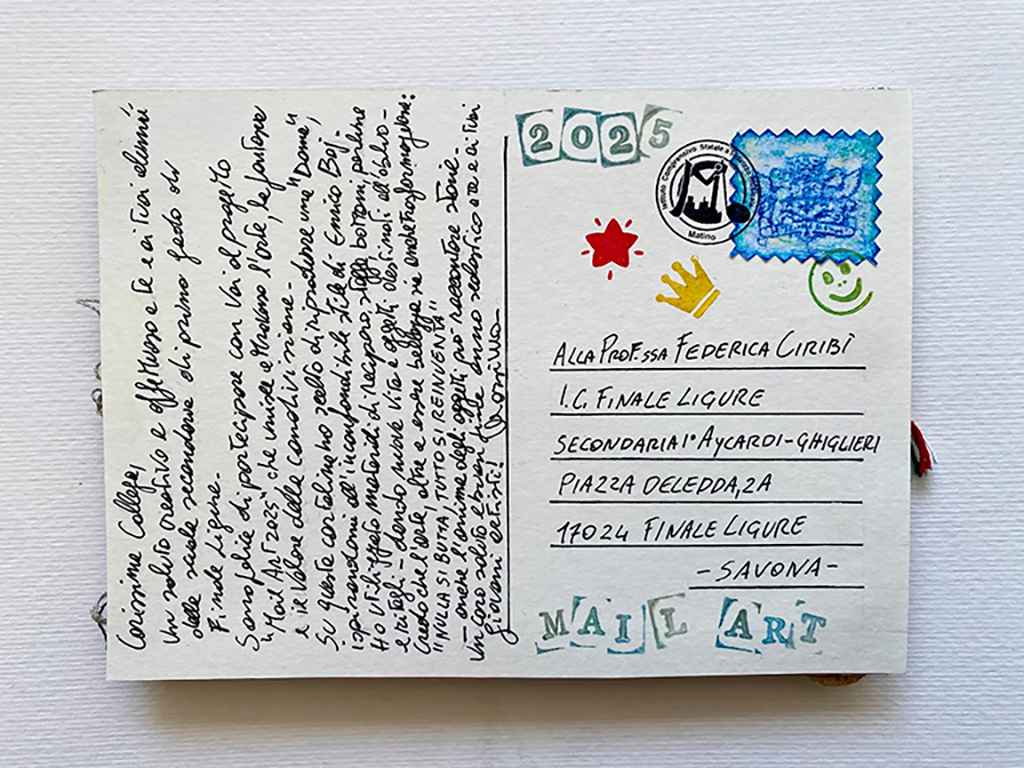 Carissime Colleghe,
Un saluto creativo e affettuoso a te e ai tuoi alunni
della scuola secondaria di primo grado di
Finale Ligure.
Sono felice di partecipare con voi al progetto
"Mail Art 2025" che unisce attraverso l'arte, la fantasia
e il valore della condivisione.
Su questa cartolina ho scelto di riprodurre una "Dama",
ispirandomi all'inconfondibile stile di Enrico Baj.
Ho utilizzato materiali di recupero, stoffa, bottoni, perline
e ritagli - dando nuova vita a oggetti destinati all'oblio -
Credo che l'arte, oltre a essere bellezza, sia anche trasformazione:
"NULLA SI BUTTA, TUTTO SI REINVENTA"
- anche l'anima degli oggetti può raccontare storie -
Un caro saluto e buon anno scolastico a te e ai tuoi
giovani artisti!
2025
Istituto Comprensivo Statale
Matino
ALLA PROF.SSA FEDERICA CIRIBÌ
I.C. FINALE LIGURE
SECONDARIA I° AYCARDI-GHIGLIERI
PIAZZA DELEDDA, 2A
17024 FINALE LIGURE
-SAVONA-
MAIL ART